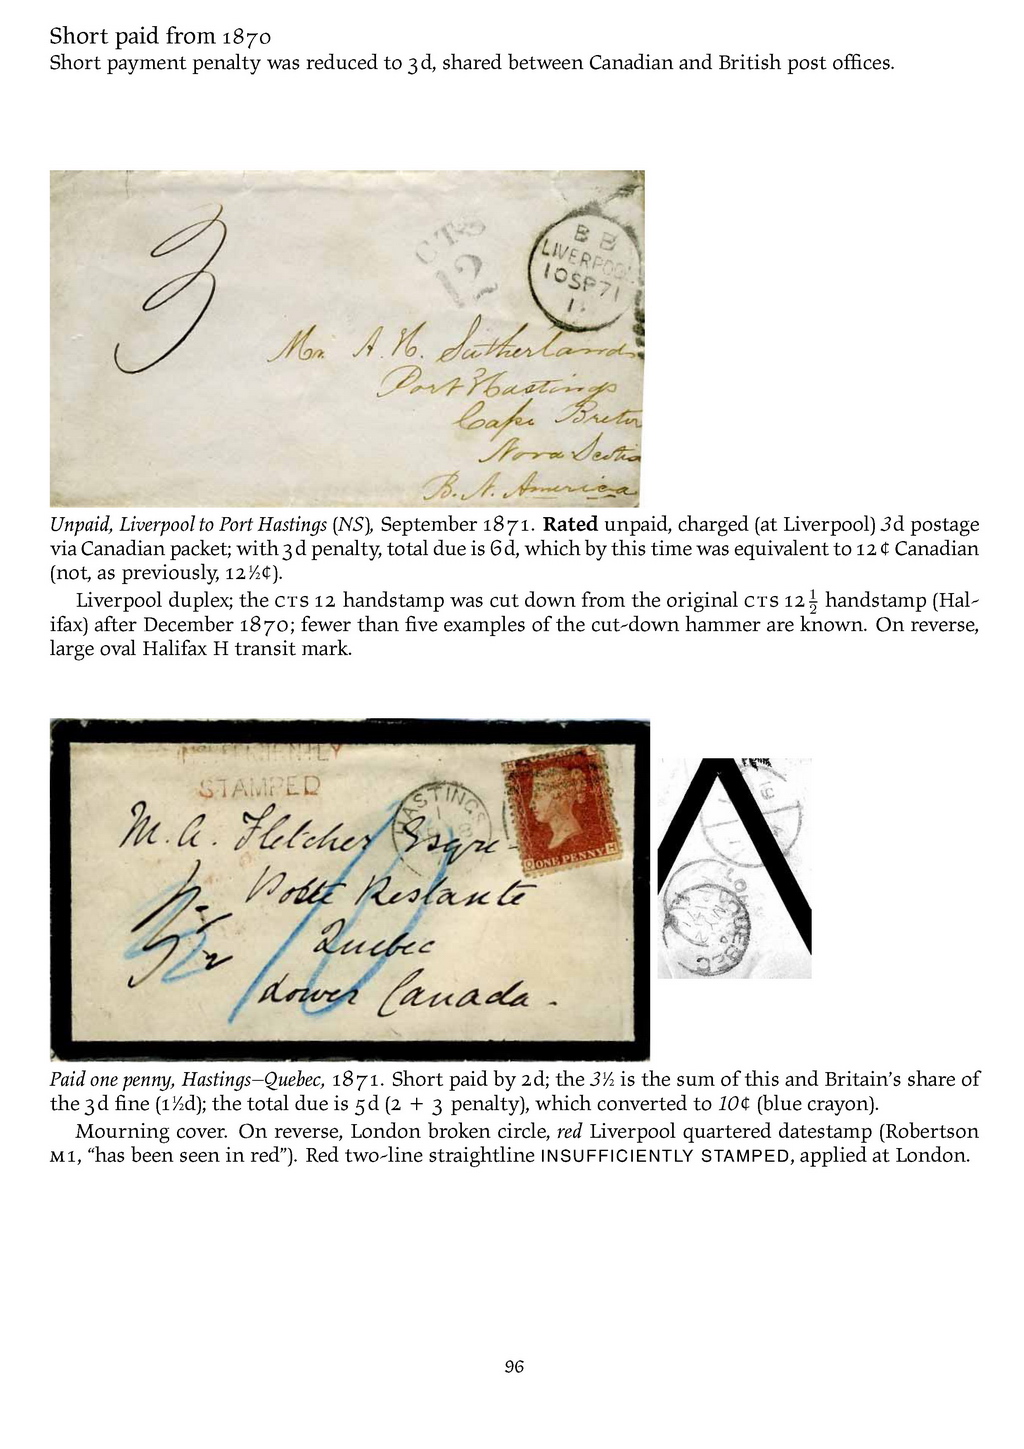 Short paid from 1870
Short payment penalty was reduced to 3d, shared between Canadian and British post offices.
3
CTS
12
B B
LIVERPOOL
10SP71
Mr. A. H. Sutherland
Port Hastings
Cape Breton
Nova Scotia
B. N. America
Unpaid, Liverpool to Port Hastings (NS), September 1871. Rated unpaid, charged (at Liverpool) 3d postage
via Canadian packet; with 3d penalty, total due is 6d, which by this time was equivalent to 12¢ Canadian
(not, as previously, 12½¢).
Liverpool duplex; the CTS 12 handstamp was cut down from the original CTS 12½ handstamp (Hal-
ifax) after December 1870; fewer than five examples of the cut-down hammer are known. On reverse,
large oval Halifax H transit mark.
INSUFFICIENTLY
STAMPED
HASTINGS
ONE PENNY
M. A. Fletcher Esqre
Poste Restante
Quebec
Lower Canada.
3½
10
QUEBEC
Paid one penny, Hastings–Quebec, 1871. Short paid by 2d; the 3½ is the sum of this and Britain's share of
the 3d fine (1½d); the total due is 5d (2 + 3 penalty), which converted to 10¢ (blue crayon).
Mourning cover. On reverse, London broken circle, red Liverpool quartered datestamp (Robertson
M1, “has been seen in red”). Red two-line straightline INSUFFICIENTLY STAMPED, applied at London.
96